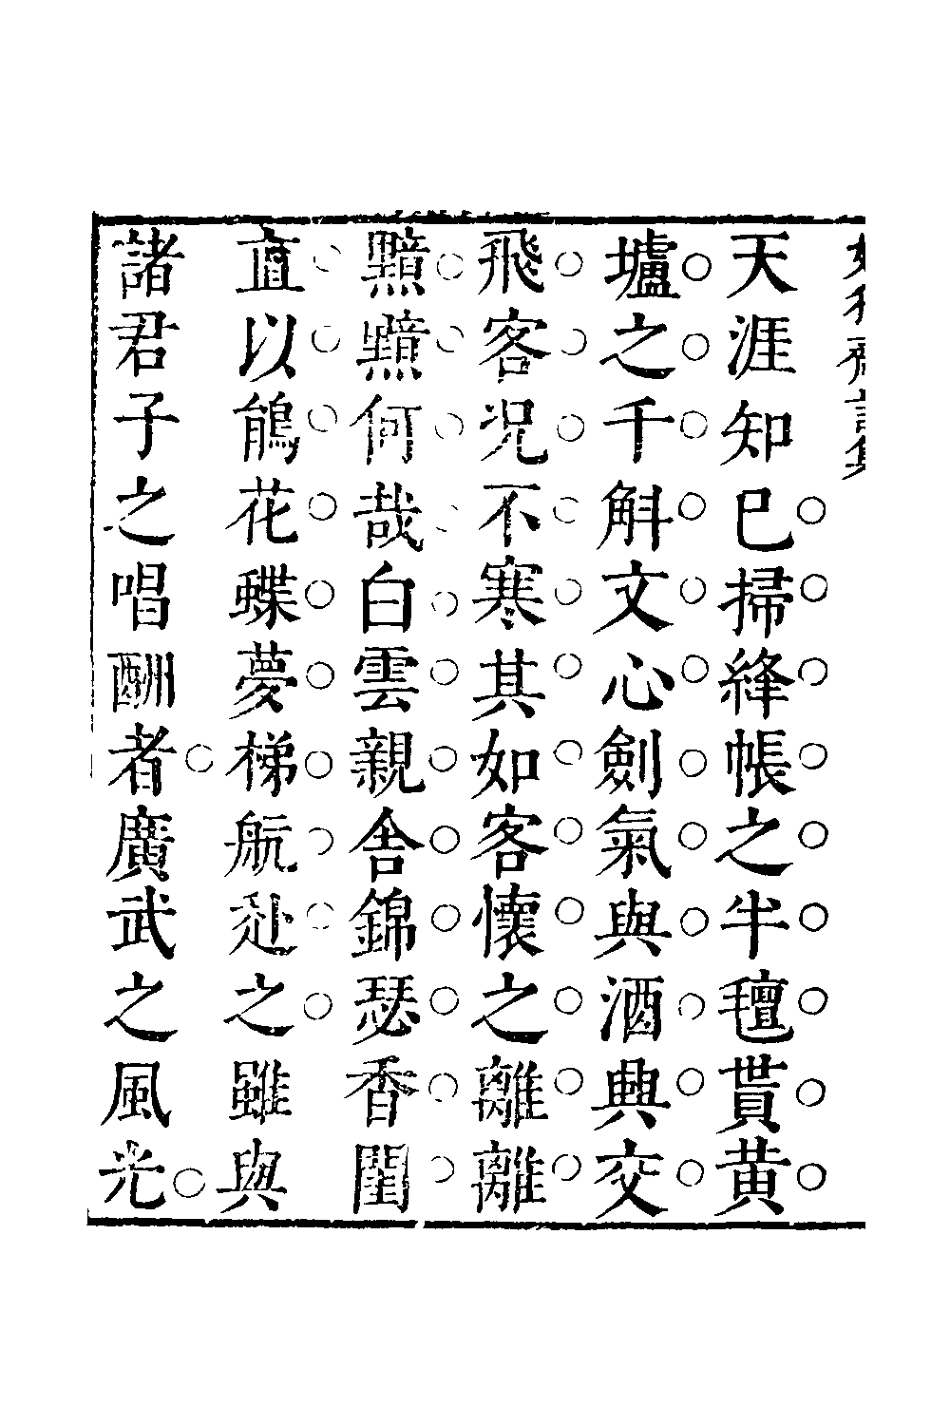 天涯知巳掃絳帳之半氊貰黄
壚之千斛文心劍氣與酒興交
飛客况不寒其如客懷之離離
黯黯何哉白雲親舍錦瑟香閨
直以鵑花蝶夢梯航赴之雖與
諸君子之唱酬者廣武之風光